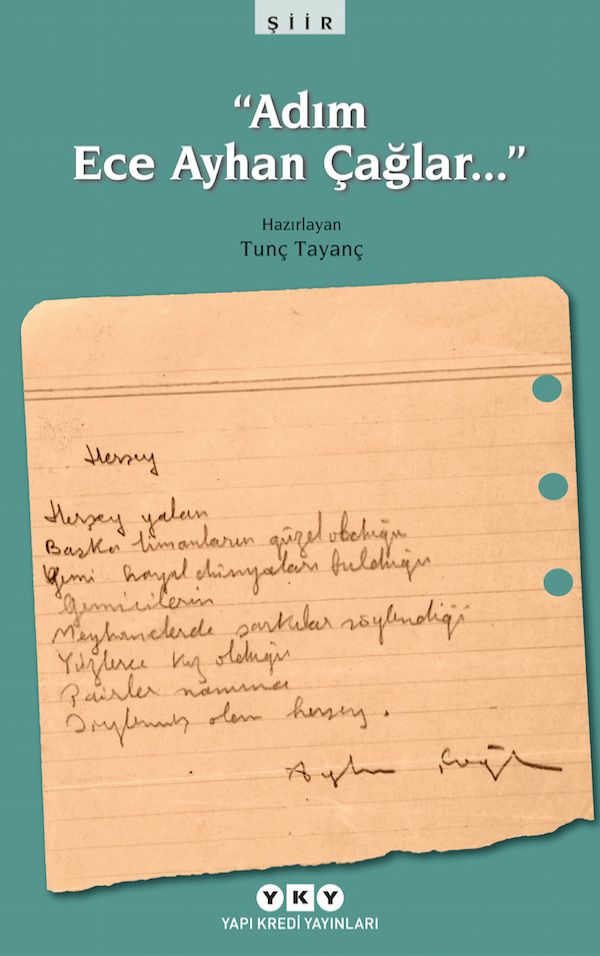 ŞİİR
“Adım
Ece Ayhan Çağlar...”
Hazırlayan
Tunç Tayanç
Herşey
Herşey yalan
Başka limanların güzel olduğu
Yeni hayal dünyaları bulduğu
Gemicilerin
Meyhanelerde şarkılar söylendiği
Yüzlerce kız olduğu
Şairler namına
Söylenmiş olan herşey.
Ayhan Çağlar
YKY
YAPI KREDİ YAYINLARI